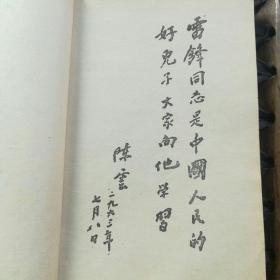 雷锋同志是中國人民的
好兒子大家向他学習
陈雲
一九六三年
七月八日